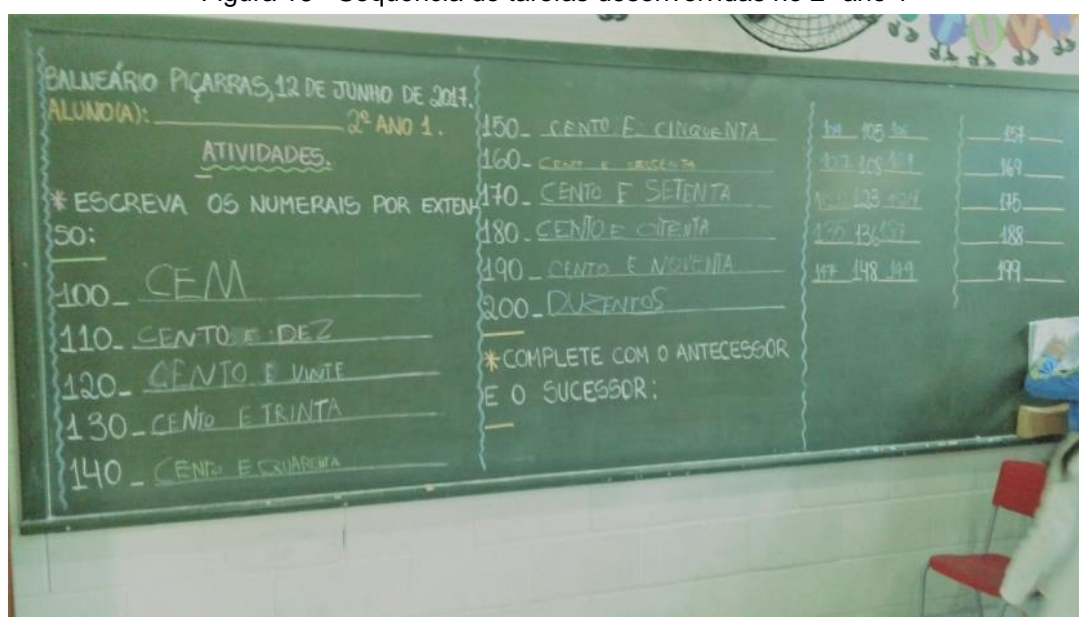 BALNEÁRIO PIÇARRAS, 12 DE JUNHO DE 2017.
ALUNO(A): 2º ANO 1.
ATIVIDADES.
* ESCREVA OS NUMERAIS POR EXTEN-
SO:
100- CEM
110- CENTO E DEZ
120- CENTO E VINTE
130- CENTO E TRINTA
140- CENTO E QUARENTA
150- CENTO E CINQUENTA
160- E
170- CENTO E SETENTA
180- CENTO E OITENTA
190- CENTO E NOVENTA
200- DUZENTOS
* COMPLETE COM O ANTECESSOR
E O SUCESSOR:
105
108
123 124
136
147 148 149
157
169
175
188
199